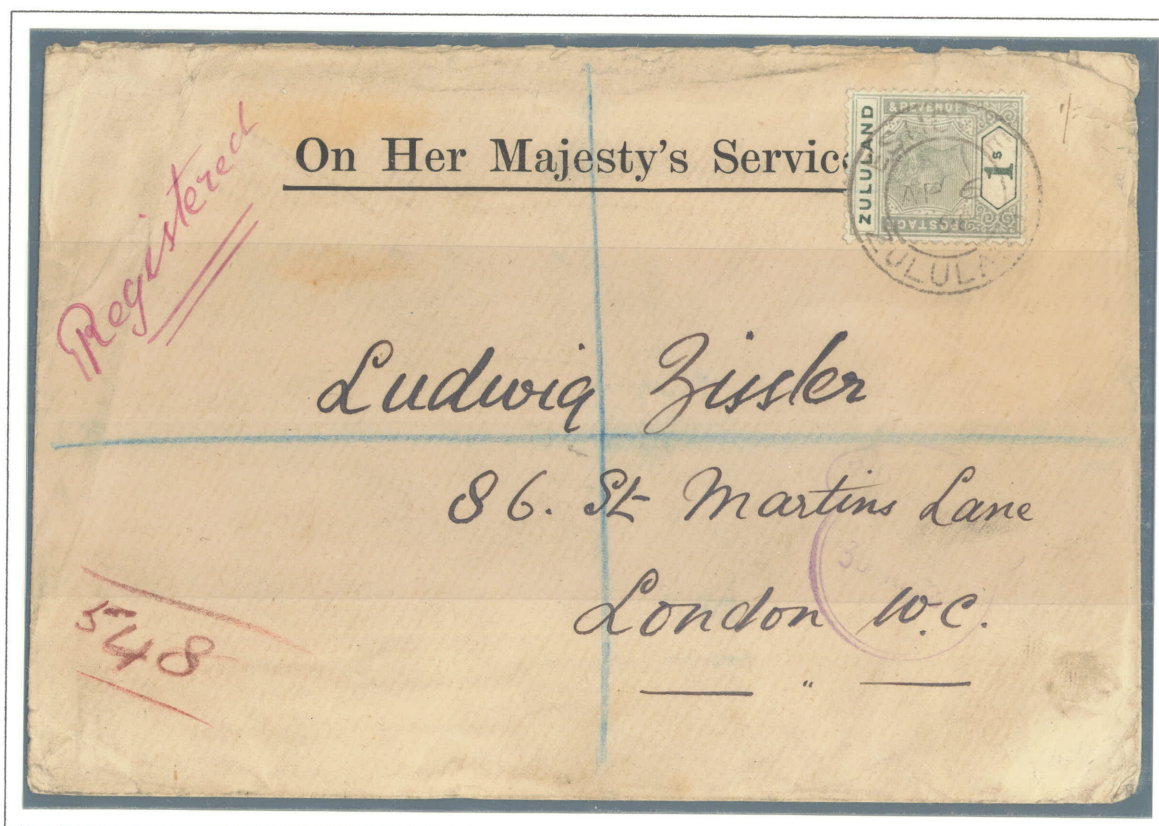 Registered
On Her Majesty's Service
ZULULAND
& REVENUE
1s
POSTAGE
AP 6
ZULULAND
Ludwig Zissler
86. St Martins Lane
London W.C.
548